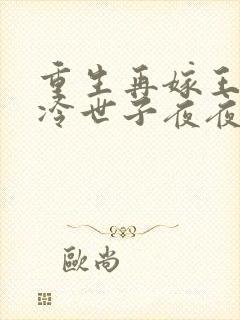 重生再嫁王
冷世子夜夜
歐尚